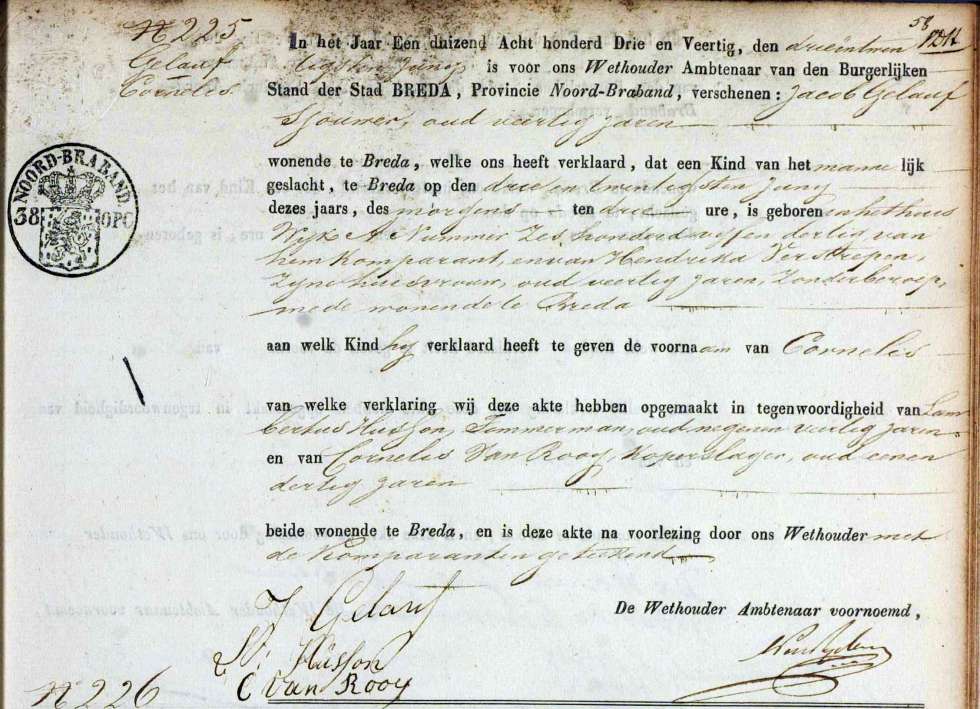 N 225
Gelauf
Cornelis
53
NOORD-BRABAND
38 10PC
In het Jaar Een duizend Acht honderd Drie en Veertig, den drieentwin
tigsten Juny is voor ons Wethouder Ambtenaar van den Burgerlijken
Stand der Stad BREDA, Provincie Noord-Braband, verschenen: Jacob Gelauf
Sjouwer, oud veertig jaren
wonende te Breda, welke ons heeft verklaard, dat een Kind van het manne lijk
geslacht, te Breda op den drie en twentigsten Juny
dezes jaars, des morgens ten drie ure, is geboren in het huis
Wijk A Nummer Zes honderd vijf en dertig van
hem komparant, en van Hendrika Verstrepen,
Zyne huisvrouw, oud veertig jaren, Zonder beroep,
mede wonende te Breda
aan welk Kind hy verklaard heeft te geven de voornaam van Cornelis
van welke verklaring wij deze akte hebben opgemaakt in tegenwoordigheid van Lam
bertus Husson, Timmerman, oud negen en veertig jaren
en van Cornelis Van Rooy, Koperslager, oud een en
dertig jaren
beide wonende te Breda, en is deze akte na voorlezing door ons Wethouder met
de Komparanten geteekend
De Wethouder Ambtenaar voornoemd,
J Gelauf
Husson
C van Rooy
N 226